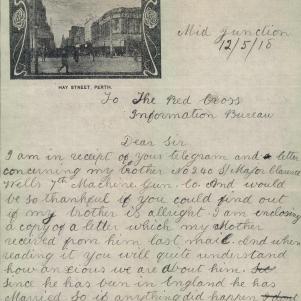 HAY STREET, PERTH.
Mid Junction
12/5/18
To The Red Cross
Information Bureau
Dear Sir
I am in receipt of your telegram and letter
concerning my brother No 240 St Major Clarence
Wells 7th Machine Gun. Co. And would
be so thankful if you could find out
if my brother is allright. I am enclosing
a copy of a letter which my Mother
received from him last mail. And when
reading it you will quite understand
how anxious we are about him.
Since he has been in England he has
Married. So if anything did happen